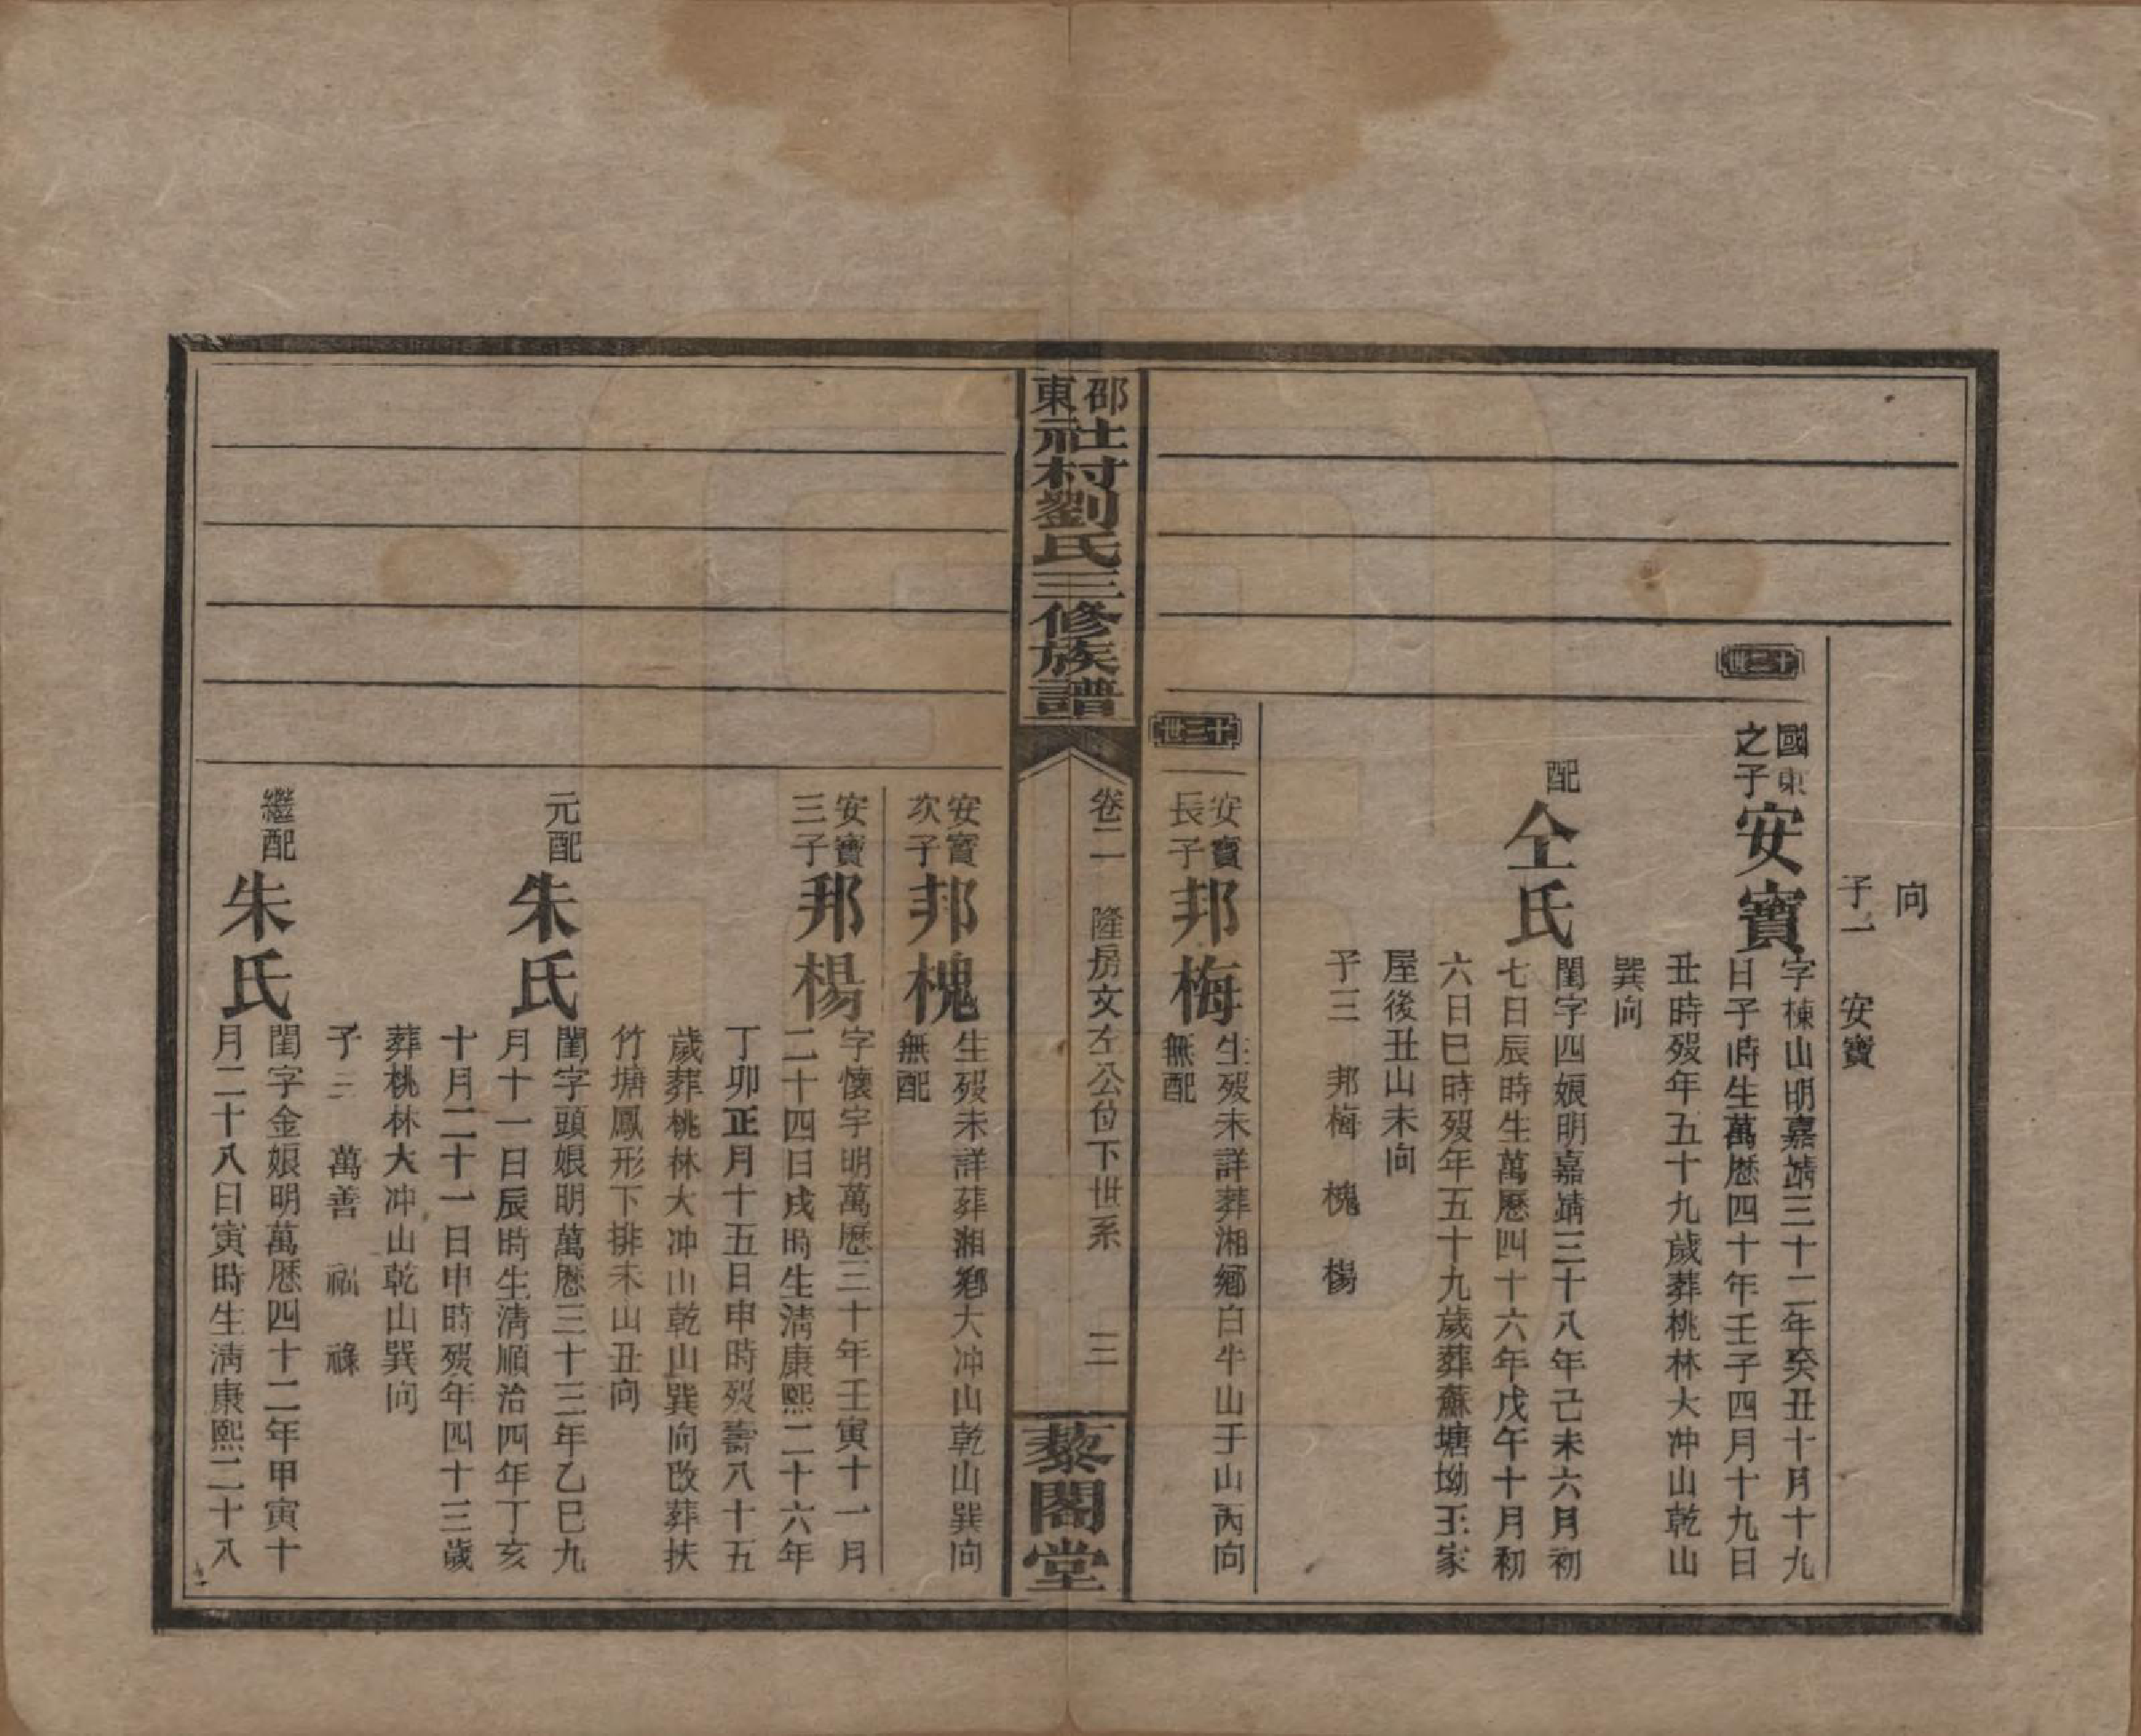 向
子一　安寶
十二世
國東之子
安寶
字棟山明嘉靖三十二年癸丑十月十九
日子時生萬歷四十年壬子四月十九日
丑時歿年五十九歲葬桃林大冲山乾山
巽向
配
仝氏
閨字四娘明嘉靖三十八年己未六月初
七日辰時生萬歷四十六年戊午十月初
六日巳時歿年五十九歲葬蘇塘坳王家
屋後丑山未向
子三　邦梅　槐　楊
十三世
安寶長子
邦梅
生歿未詳葬湘鄉白牛山子山丙向
無配
邵東社村劉氏三修族譜
卷二　隆房文左公位下世系　三
藜閣堂
安寶次子
邦槐
生歿未詳葬湘鄉大冲山乾山巽向
無配
安寶三子
邦楊
字懷宇明萬歷三十年壬寅十一月
二十四日戌時生清康熙二十六年
丁卯正月十五日申時歿壽八十五
歲葬桃林大冲山乾山巽向改葬扶
竹塘鳳形下排未山丑向
元配
朱氏
閨字頭娘明萬歷三十三年乙巳九
月十一日辰時生清順治四年丁亥
十月二十一日申時歿年四十三歲
葬桃林大冲山乾山巽向
子三　萬善　福　祿
繼配
朱氏
閨字金娘明萬歷四十二年甲寅十
月二十八日寅時生清康熙二十八